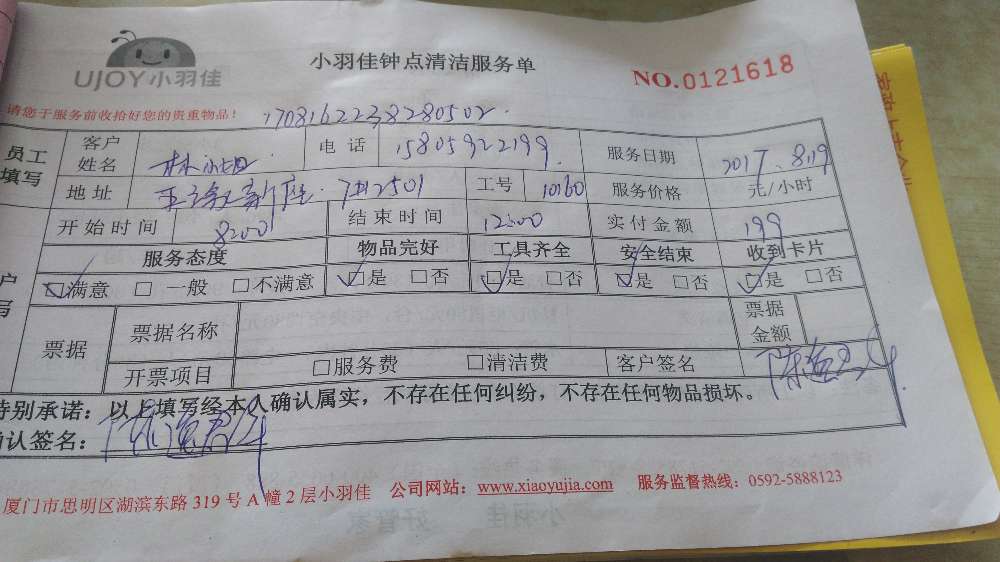 UJOY小羽佳
小羽佳钟点清洁服务单
NO.0121618
请您于服务前收拾好您的贵重物品!
17081622238280502
员工填写
客户姓名 林 电话 15805922199 服务日期 2017.8.19
地址 7#2501 工号 10160 服务价格 元/小时
开始时间 8:00 结束时间 12:00 实付金额 199
服务态度 物品完好 工具齐全 安全结束 收到卡片
☑满意 □一般 □不满意 ☑是 □否 ☑是 □否 ☑是 □否 ☑是 □否
户
写
票据 票据名称 票据金额
开票项目 □服务费 □清洁费 客户签名
特别承诺：以上填写经本人确认属实，不存在任何纠纷，不存在任何物品损坏。
确认签名：
厦门市思明区湖滨东路 319 号 A 幢 2 层小羽佳 公司网站：www.xiaoyujia.com 服务监督热线：0592-5888123